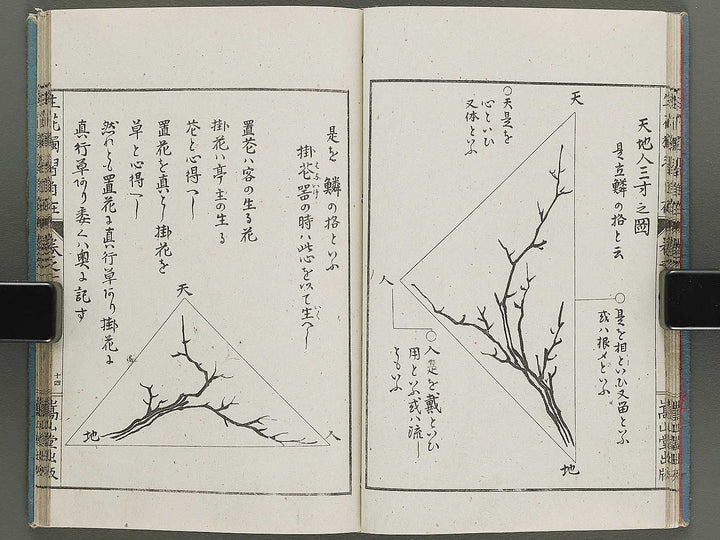 天地人三才之圖
是立鱗の格と云
天
○天是を
心といひ
又体といふ
○是を相といひ又留といふ
或ハ根〆といふ
人
○人是を戴といひ
用といふ或ハ流し
ともいふ
地
是を鱗の格といふ
掛花器の時ハ此心を以て生へし
置花ハ客の生る花
掛花ハ亭主の生る
花と心得へし
置花を真とし掛花を
草と心得へし
然れとも置花に真行草あり掛花に
真行草あり委くハ奥に記す
天
地
人
十四
嵩山堂出版
嵩山堂出版